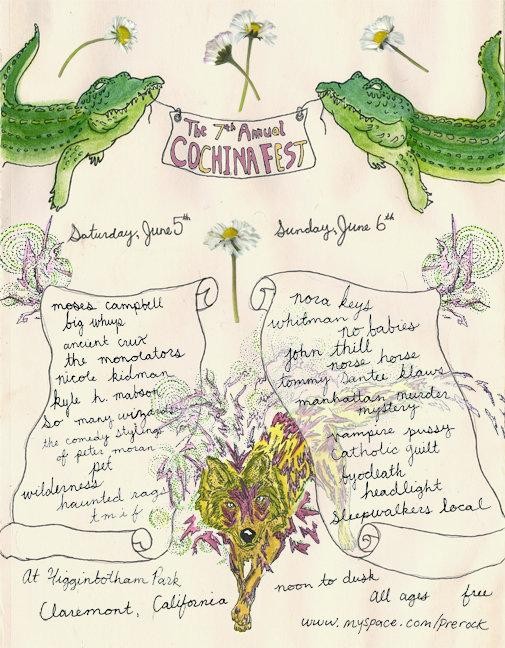 The 7th Annual
COCHINA FEST
Saturday, June 5th
Sunday, June 6th
moses campbell
big whup
ancient crux
the monolators
nicole kidman
kyle h. mabson
so many wizards
the comedy stylings
of peter moran
pet
wilderness
haunted rags
t m i f
nora keys
whitman
no babies
john thill
norse horse
tommy santee klaws
manhattan murder
mystery
vampire pussy
Catholic guilt
byodeath
headlight
sleepwalkers local
At Higginbotham Park
Claremont, California
noon to dusk
All ages free
www.myspace.com/prerock